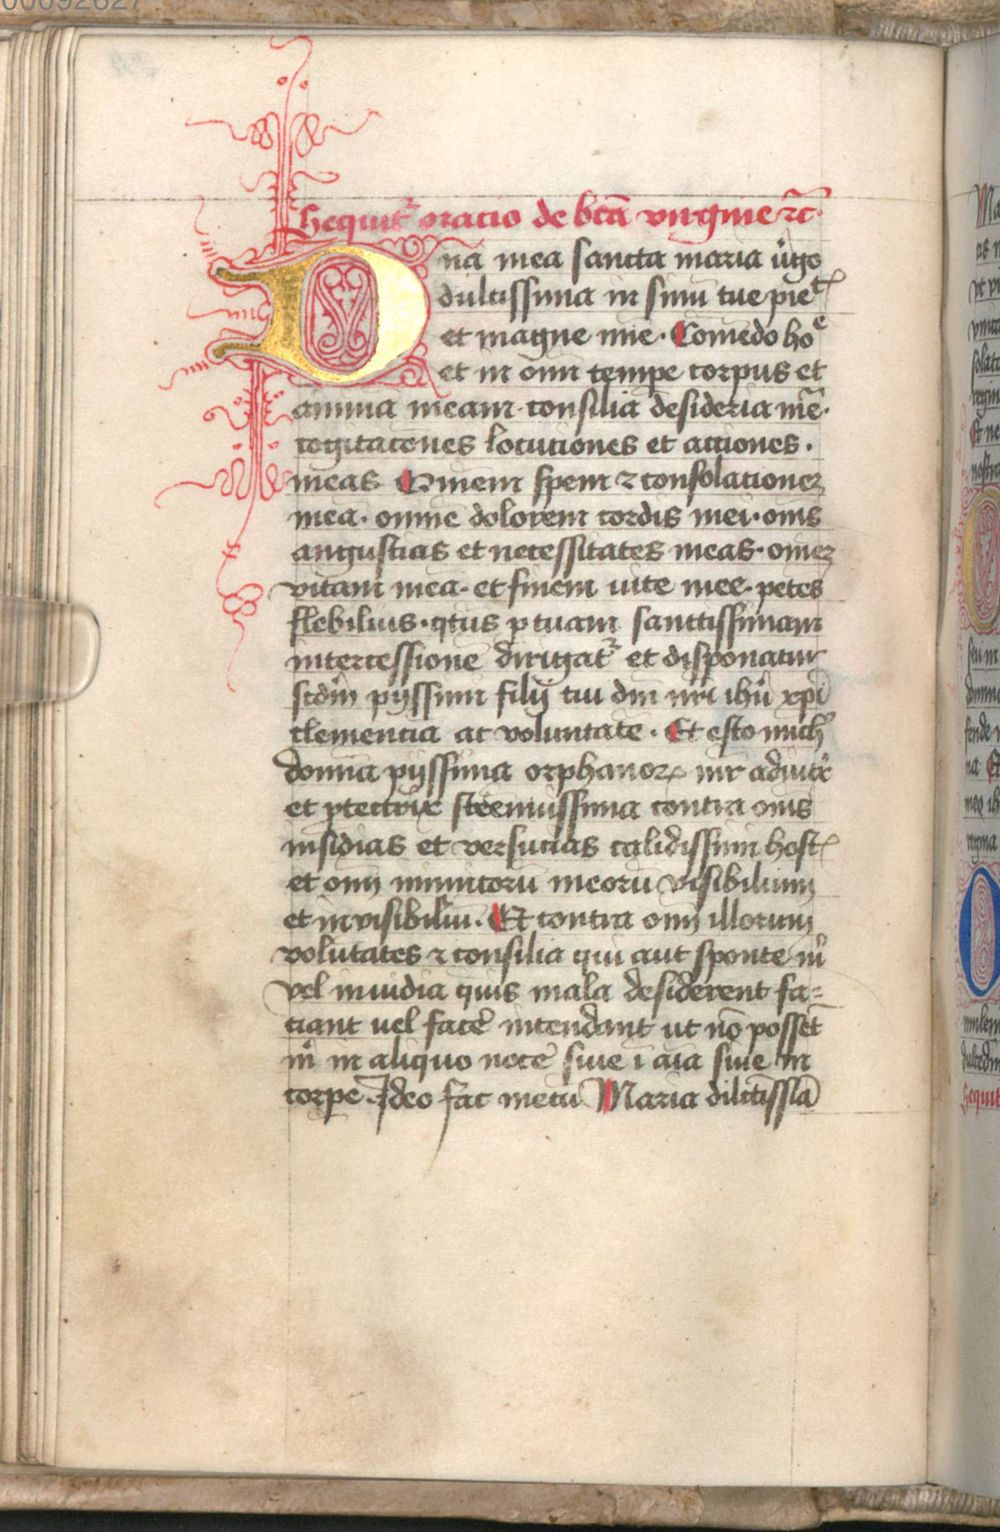 Sequit᷑ oracio de bta᷑ virgine ꝛc̄·
Dn̄a mea sancta maria v̓go
dulcissima in sinū tue pietꝭ
et magne mie· Cōmēdo hoͤ
et in om̄i tempe corpus et
animā meam· consilia desideria mē·
cogitacōnes locuciones et acciones·
meas Omnem spem ⁊ consolacionez
meā· omnē dolorem cordis mei· om̄s
angustias et necessitates meas· om̄ez
vitam meā· et finem vite mee· petēs
flebilius· qtus p tuam sanctissimam
intercessionē dirigat᷑ et disponatur
scdm̄ pijssimi filij tui dn̄i nr̄i ihū xpī
clemencia ac voluntatē· Et esto mich̓
domīa pijssima orphanoꝝ mr̄ adiutͥx
et ptectrix strēnuissima contra om̄s
insidias et versucias calidissimi hostꝭ
et om̄i inimicorū meorū visibilium
et invisibiliū· Et contra om̄i illorum
volūtates ⁊ consilia qui aut sponte m̓
vel inuidia quis mala desiderent fa⸗
ciant vel facē intendant ut nō possēt
m̓ in aliquo nocē siue ī aīa siue in
corpe Ideo fac mecū Maria dilc̄tissīa